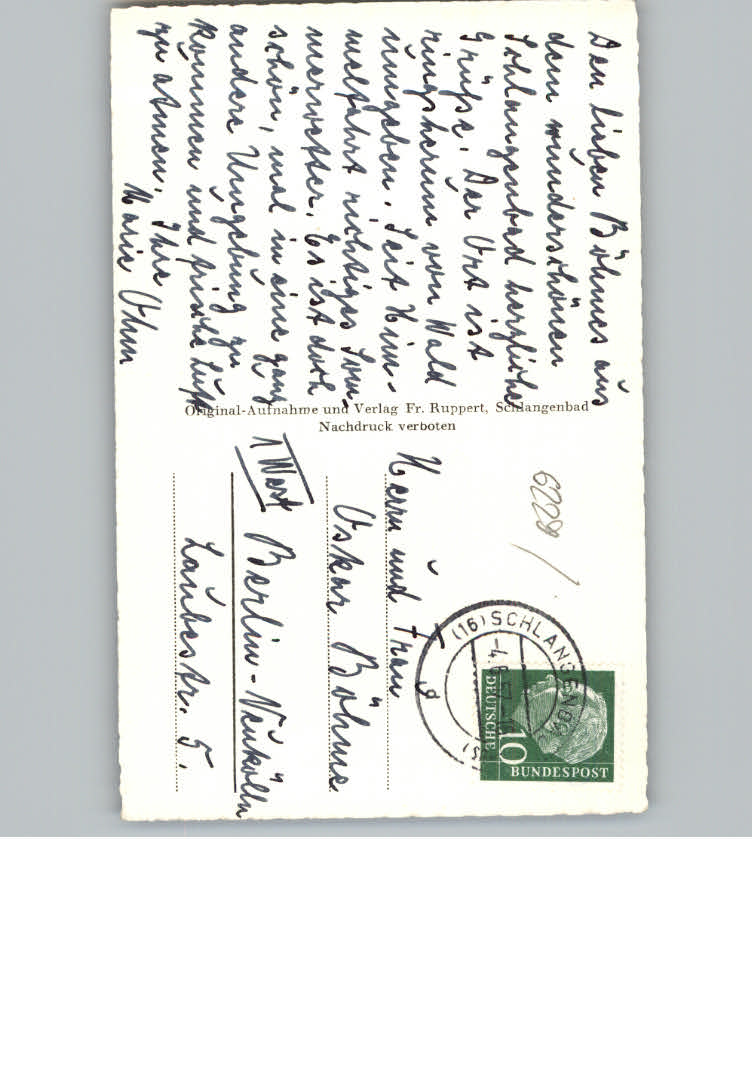 Den lieben Böhmes aus
dem wunderschönen
Schlangenbad herzliche
Grüße. Der Ort ist
ringsherum von Wald
umgeben. Seit Him-
melfahrt richtiges Som-
merwetter. Es ist doch
schön, mal in eine ganz
andere Umgebung zu
kommen und frische Luft
zu atmen. Ihre
Marie Ohm
Original-Aufnahme und Verlag Fr. Ruppert, Schlangenbad
Nachdruck verboten
6229/
(16) SCHLANGENBAD
DEUTSCHE
10
BUNDESPOST
Herrn und Frau
Oskar Böhme
1 West Berlin-Neukölln
Laubestr. 5.